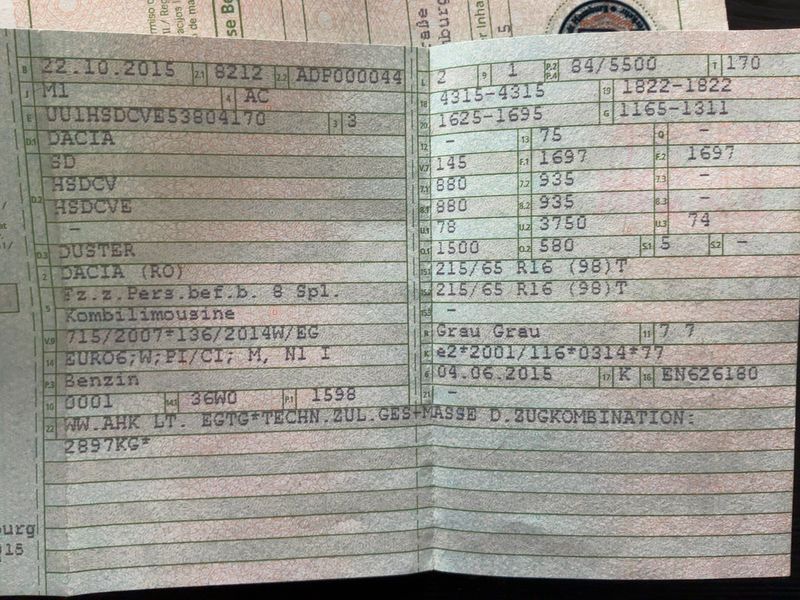 rmiso c
II/ Reg
acijos l
de mat
sse Be
raße
nburg
er Inha
5
B 22.10.2015 2.1 8212 2.2 ADP000044
J M1 4 AC
E UU1HSDCVE53804170 3 3
D.1 DACIA
SD
D.2 HSDCV
HSDCVE
-
D.3 DUSTER
2 DACIA (RO)
5 Fz.z.Pers.bef.b. 8 Spl.
Kombilimousine
V.9 715/2007*136/2014W/EG
14 EURO6;W;PI/CI; M, N1 I
P.3 Benzin
10 0001 14.1 36W0 P.1 1598
22 WW.AHK LT. EGTG*TECHN.ZUL.GES-MASSE D.ZUGKOMBINATION:
2897KG*
L 2 9 1 P.2 P.4 84/5500 T 170
18 4315-4315 19 1822-1822
20 1625-1695 G 1165-1311
12 - 13 75 Q -
V.7 145 F.1 1697 F.2 1697
7.1 880 7.2 935 7.3 -
8.1 880 8.2 935 8.3 -
U.1 78 U.2 3750 U.3 74
O.1 1500 O.2 580 S.1 5 S.2 -
15.1 215/65 R16 (98)T
15.2 215/65 R16 (98)T
15.3 -
R Grau Grau 11 7 7
K e2*2001/116*0314*77
6 04.06.2015 17 K 16 EN626180
21 -
burg
015